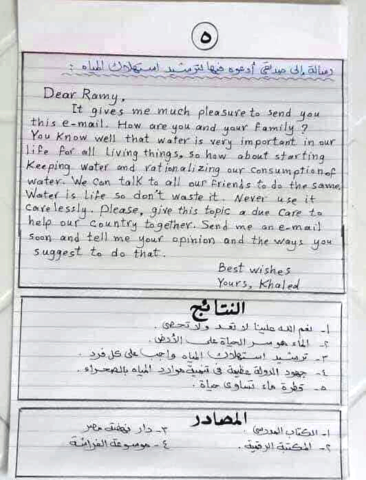 ٥
رسالة إلى صديقي أدعوه فيها لترشيد استهلاك المياه :
Dear Ramy,
It gives me much pleasure to send you
this e-mail. How are you and your family?
You know well that water is very important in our
life for all living things, so how about starting
Keeping water and rationalizing our consumption of
water. We can talk to all our friends to do the same
Water is life so don't waste it. Never use it
carelessly. Please, give this topic a due care to
help our country together. Send me an e-mail
soon and tell me your opinion and the ways you
suggest to do that.
Best wishes
Yours, Khaled
النتائج
١- نعم الله علينا لا تعد ولا تحصى .
٢- الماء هو سر الحياة على الأرض .
٣- ترشيد استهلاك المياه واجب على كل فرد .
٤- جهود الدولة عظيمة في تنمية موارد المياه بالصحراء .
٥- قطرة ماء تساوى حياة .
المصادر
١- الكتاب المدرسي ٣- دار نهضة مصر
٢- المكتبة الرقمية ٤- موسوعة